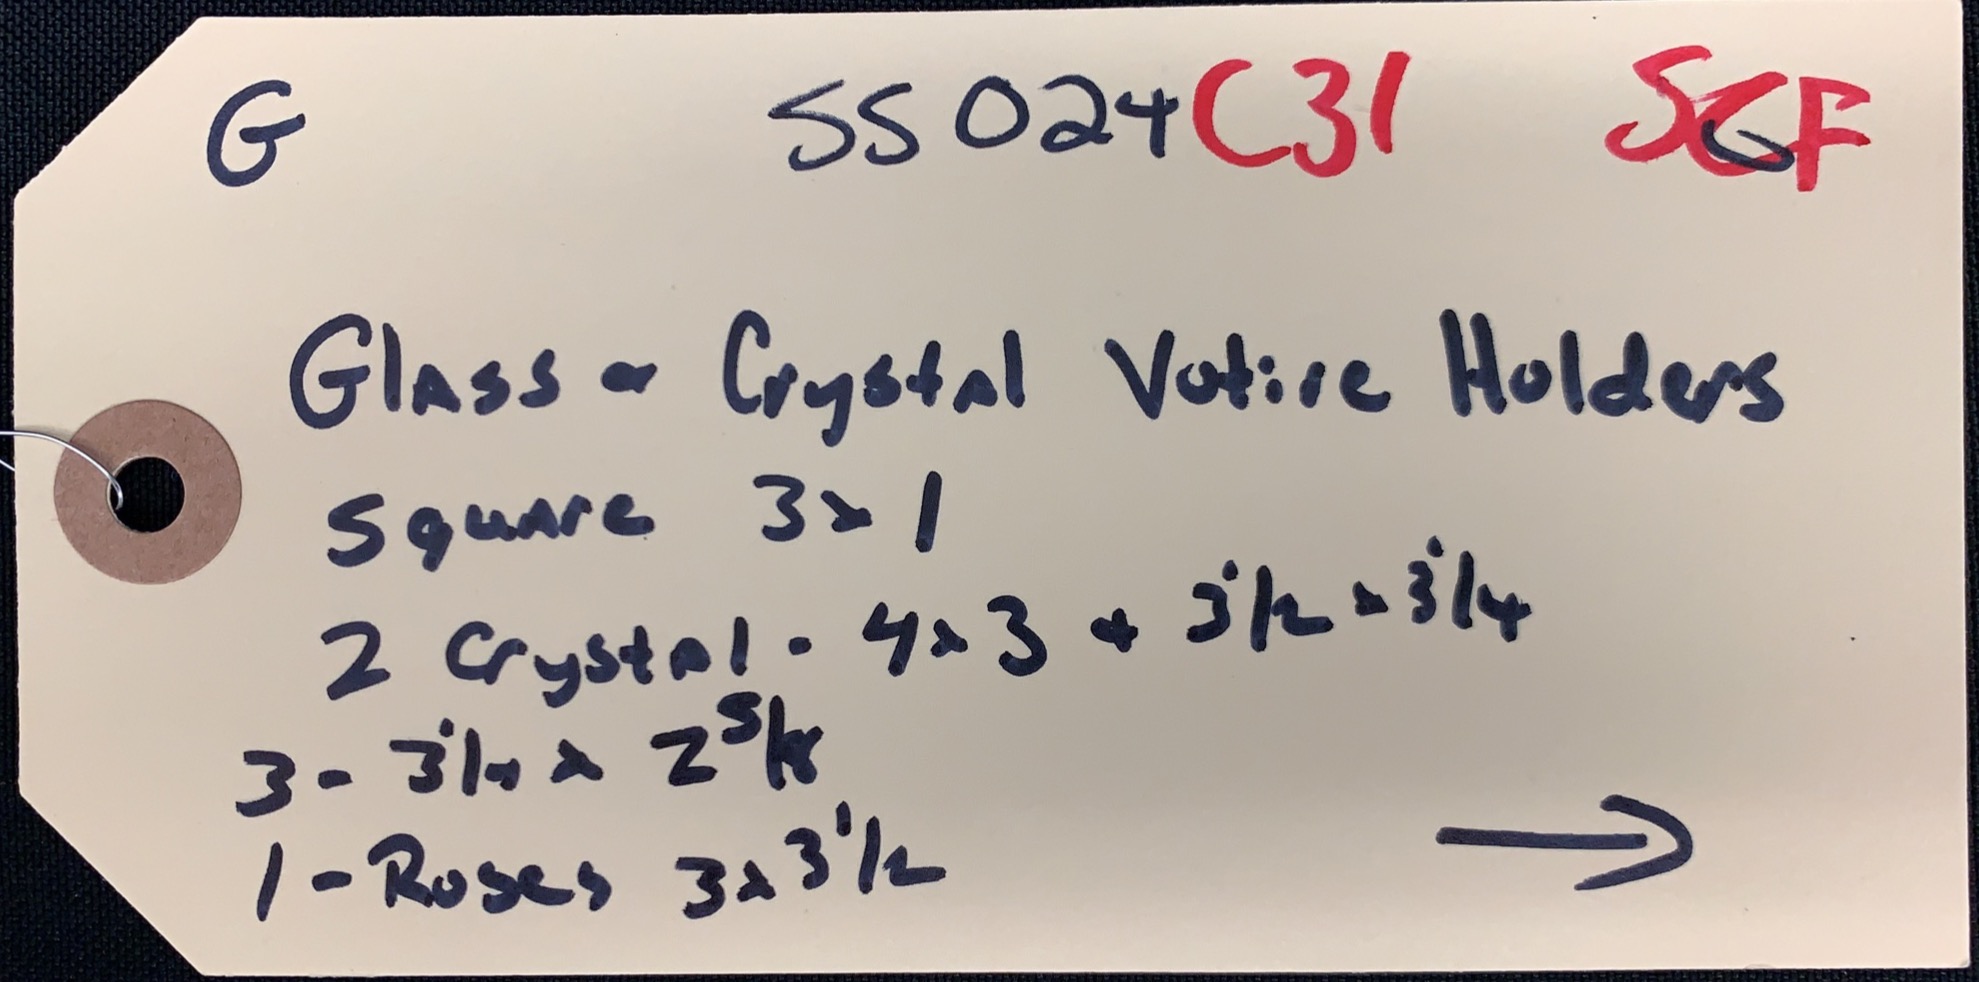 G SS024C31 SGF
Glass & Crystal Votive Holders
Square 3x1
2 Crystal - 4x3 & 3 1/2 x 3 1/4
3 - 3 1/4 x 2 5/8
1 - Roses 3x3 1/2
→